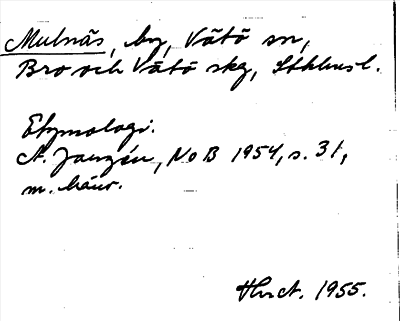 Mulnäs, by, Vätö sn,
Bro och Vätö skg, Sthlmsl.
Etymologi.
A. Janzén, NoB 1954, s. 31,
m. hänv.
1955.